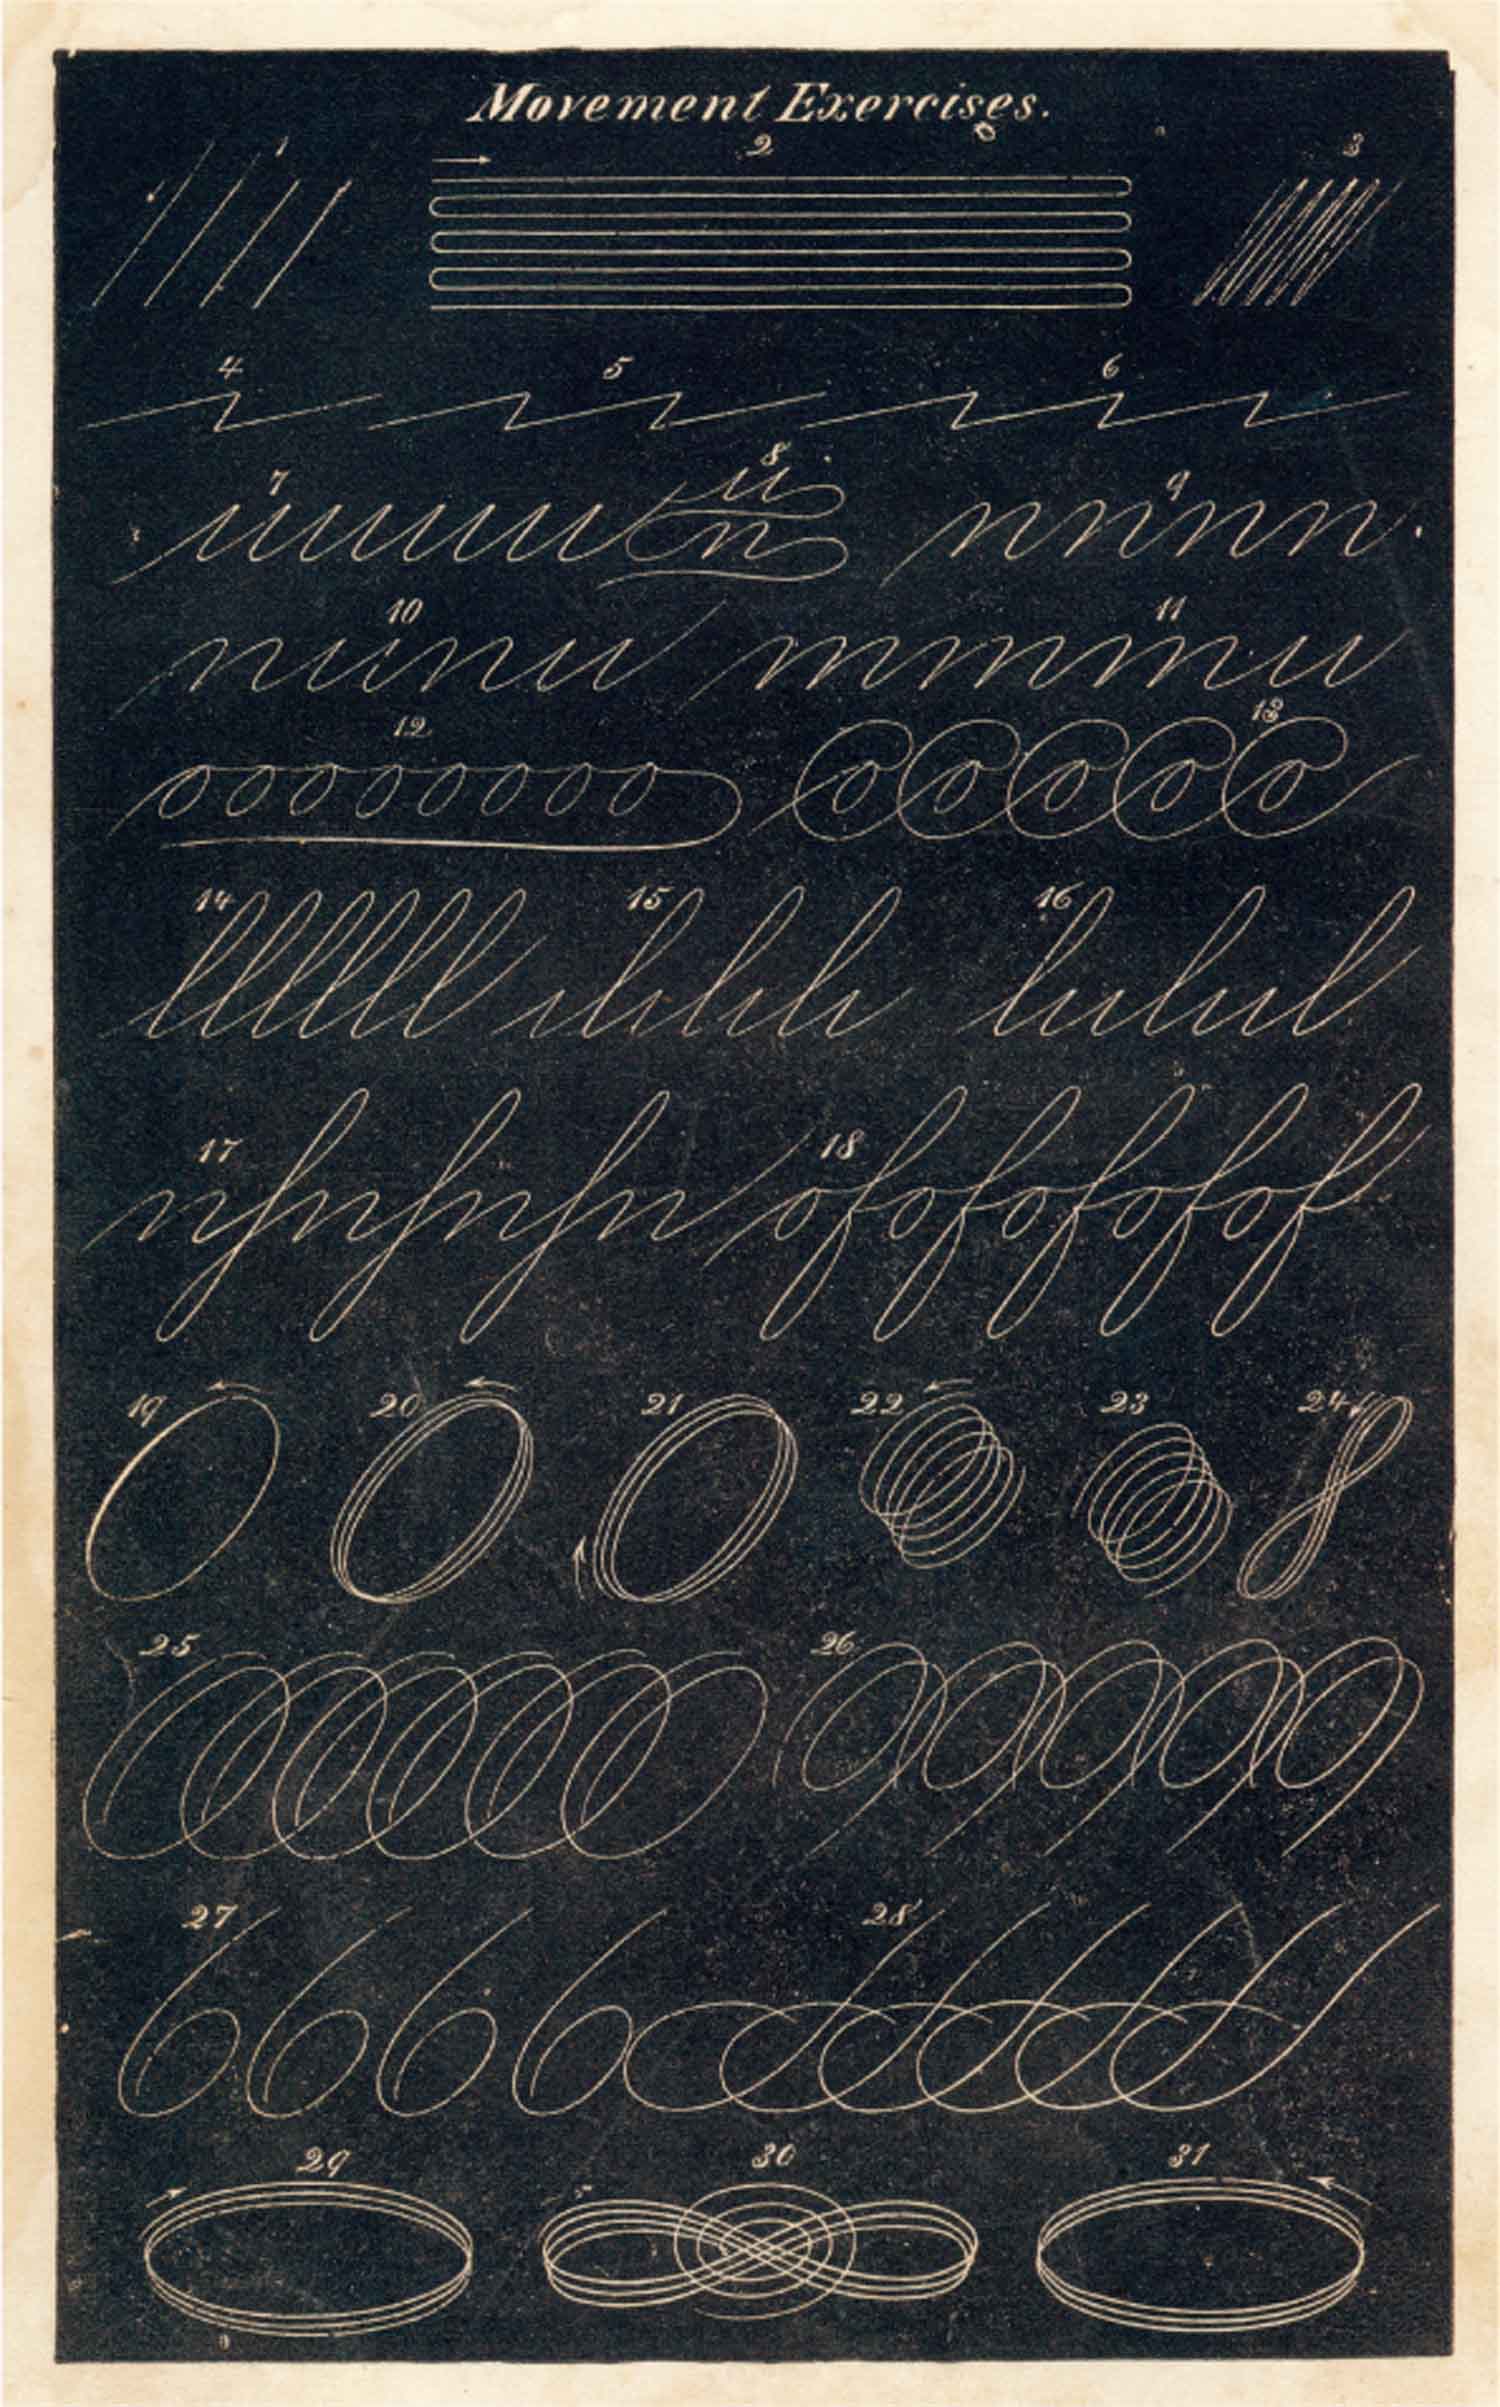 Movement Exercises.
1 2 3
4 5 6
7 8 9
u
n nnnn
10 11
nunu mmmu
12 13
oooooooo ooooo
14 15 16
llllll lulul
17 18
ofofofofof
19 20 21 22 23 24
25 26
27 28
6666
29 30 31